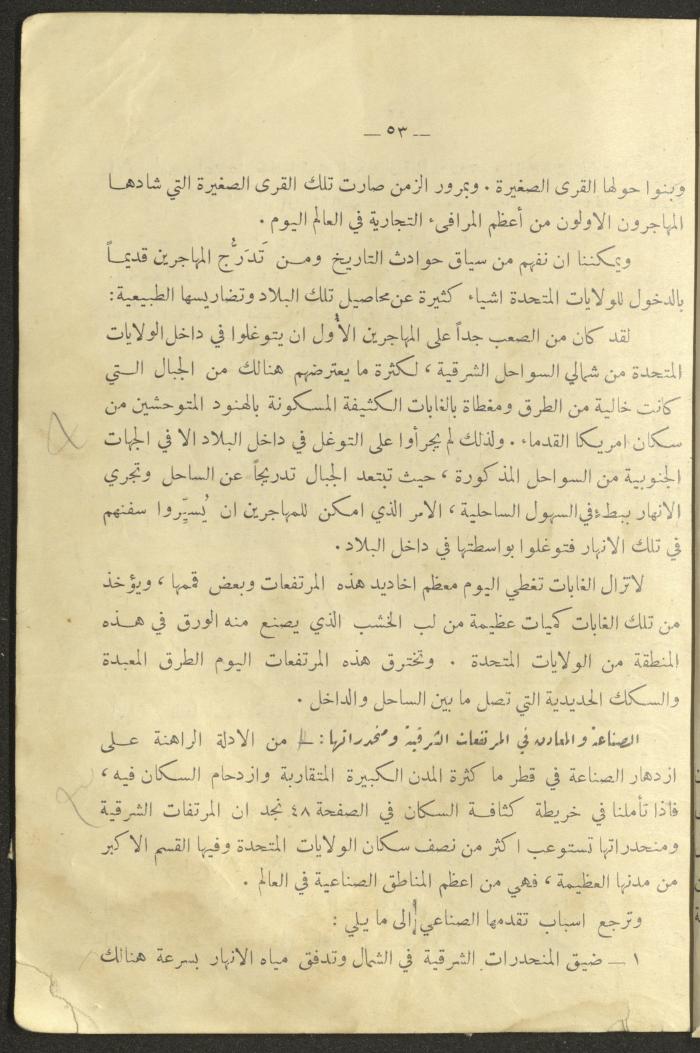 — ٥٣ —
وبنوا حولها القرى الصغيرة . وبمرور الزمن صارت تلك القرى الصغيرة التي شادها
المهاجرون الاولون من أعظم المرافىء التجارية في العالم اليوم .
ويمكننا ان نفهم من سياق حوادث التاريخ ومن تَدَرُّج المهاجرين قديماً
بالدخول للولايات المتحدة اشياء كثيرة عن محاصيل تلك البلاد وتضاريسها الطبيعية :
لقد كان من الصعب جداً على المهاجرين الأُول ان يتوغلوا في داخل الولايات
المتحدة من شمالي السواحل الشرقية ، لكثرة ما يعترضهم هنالك من الجبال التي
كانت خالية من الطرق ومغطاة بالغابات الكثيفة المسكونة بالهنود المتوحشين من
سكان امريكا القدماء . ولذلك لم يجرأوا على التوغل في داخل البلاد الا في الجهات
الجنوبية من السواحل المذكورة ، حيث تبتعد الجبال تدريجاً عن الساحل وتجري
الانهار ببطء في السهول الساحلية ، الامر الذي امكن للمهاجرين ان يُسيِّروا سفنهم
في تلك الانهار فتوغلوا بواسطتها في داخل البلاد .
لاتزال الغابات تغطي اليوم معظم اخاديد هذه المرتفعات وبعض قممها ، ويؤخذ
من تلك الغابات كميات عظيمة من لب الخشب الذي يصنع منه الورق في هذه
المنطقة من الولايات المتحدة . وتخترق هذه المرتفعات اليوم الطرق المعبدة
والسكك الحديدية التي تصل ما بين الساحل والداخل .
الصناعة والمعادن في المرتفعات الشرقية ومنحدراتها : من الادلة الراهنة على
ازدهار الصناعة في قطر ما كثرة المدن الكبيرة المتقاربة وازدحام السكان فيه ،
فاذا تأملنا في خريطة كثافة السكان في الصفحة ٤٨ نجد ان المرتفات الشرقية
ومنحدراتها تستوعب اكثر من نصف سكان الولايات المتحدة وفيها القسم الاكبر
من مدنها العظيمة ، فهي من اعظم المناطق الصناعية في العالم .
وترجع اسباب تقدمها الصناعي إلى ما يلي :
١ — ضيق المنحدرات الشرقية في الشمال وتدفق مياه الانهار بسرعة هنالك